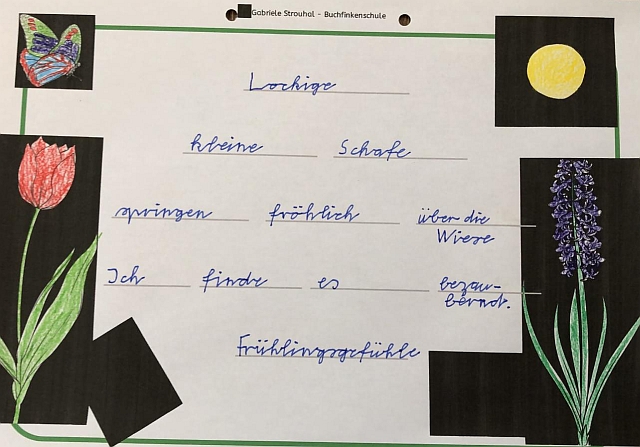 Gabriele Strouhal - Buchfinkenschule
Lockige
kleine Schafe
springen fröhlich über die
Wiese
Ich finde es bezau-
bernd.
Frühlingsgefühle